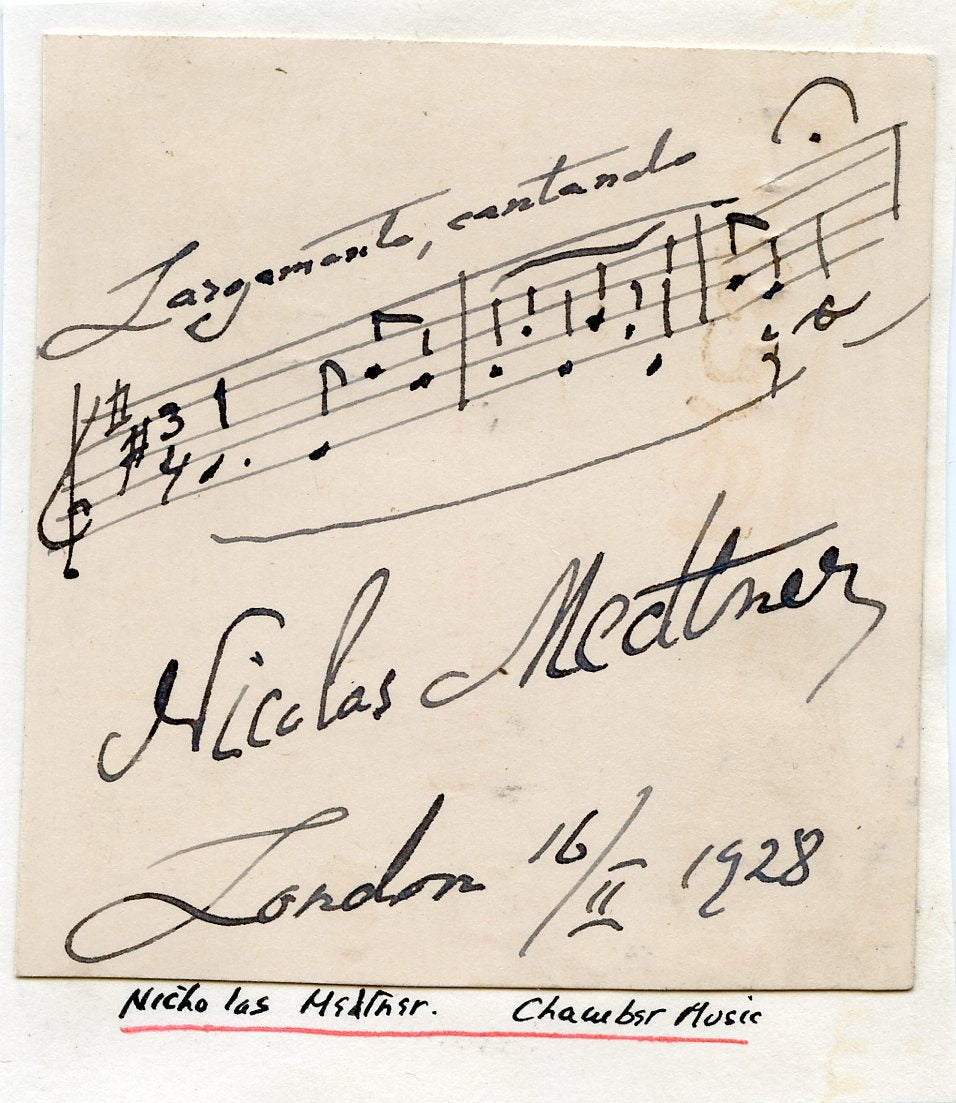 Largamente, cantando
3
4
Nicolas Medtner
London 16/II 1928
Nicholas Medtner. Chamber Music